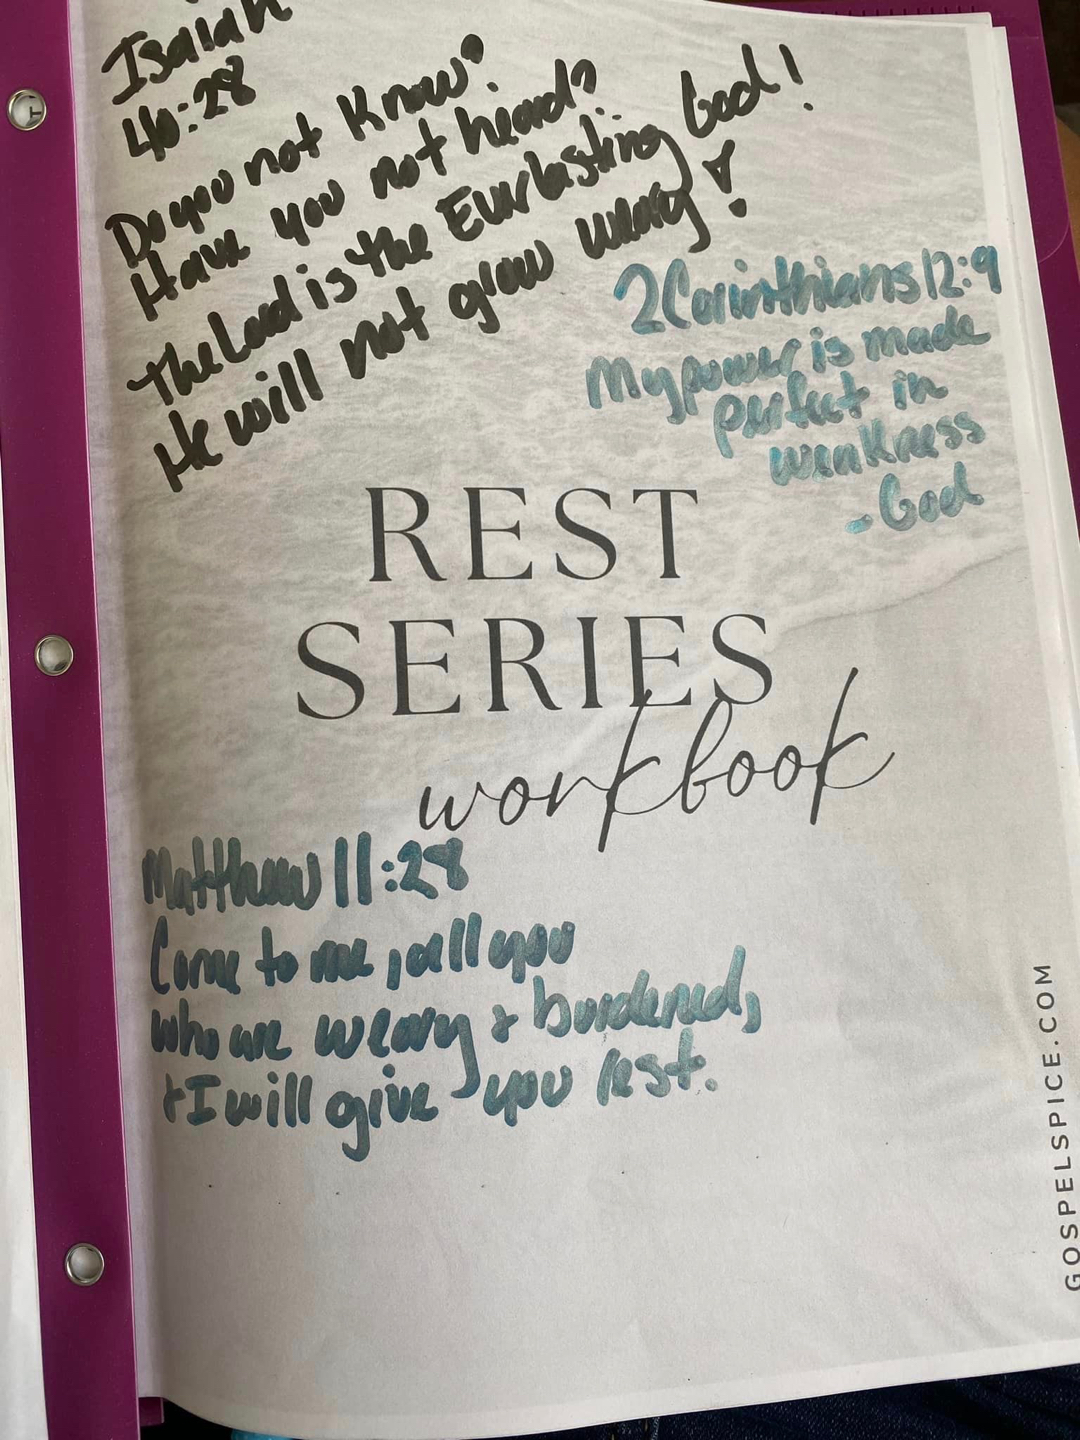 Isaiah
40:28
Do you not know?
Have you not heard?
The Lord is the Everlasting God!
He will not grow weary!
2 Corinthians 12:9
My power is made
perfect in
weakness
- God
REST
SERIES
workbook
Matthew 11:28
Come to me, all you
who are weary & burdened,
& I will give you rest.
GOSPELSPICE.COM